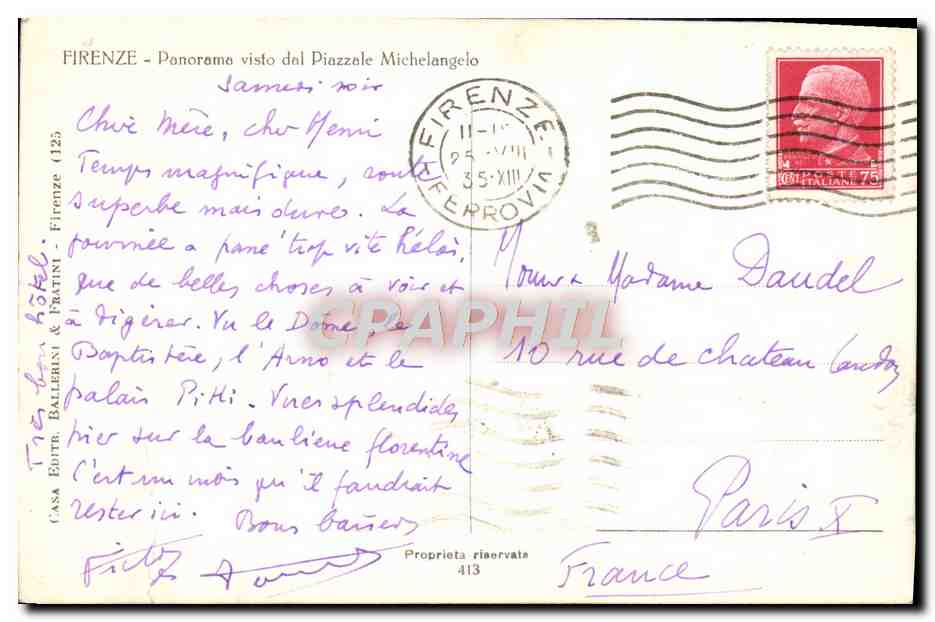 FIRENZE - Panorama visto dal Piazzale Michelangelo
Samedi soir
Chère Mère, cher Henri
Temps magnifique, route
superbe mais dure. La
journée a passé trop vite hélas,
que de belles choses à voir et
à digérer. Vu le Dôme, le
Baptistère, l'Arno et le
palais Pitti. Vues splendides
hier sur la banlieue florentine
C'est un mois qu'il faudrait
rester ici. Bons baisers
Très bon hôtel.
CASA EDITR. BALLERINI & FRATINI - Firenze (125
FIRENZE
35·XIII
FERROVIA
POSTE
ITALIANE 75
Madame Daudel
10 rue de chateau Landon
Paris X
France
Proprieta riservata
413
CPAPHIL